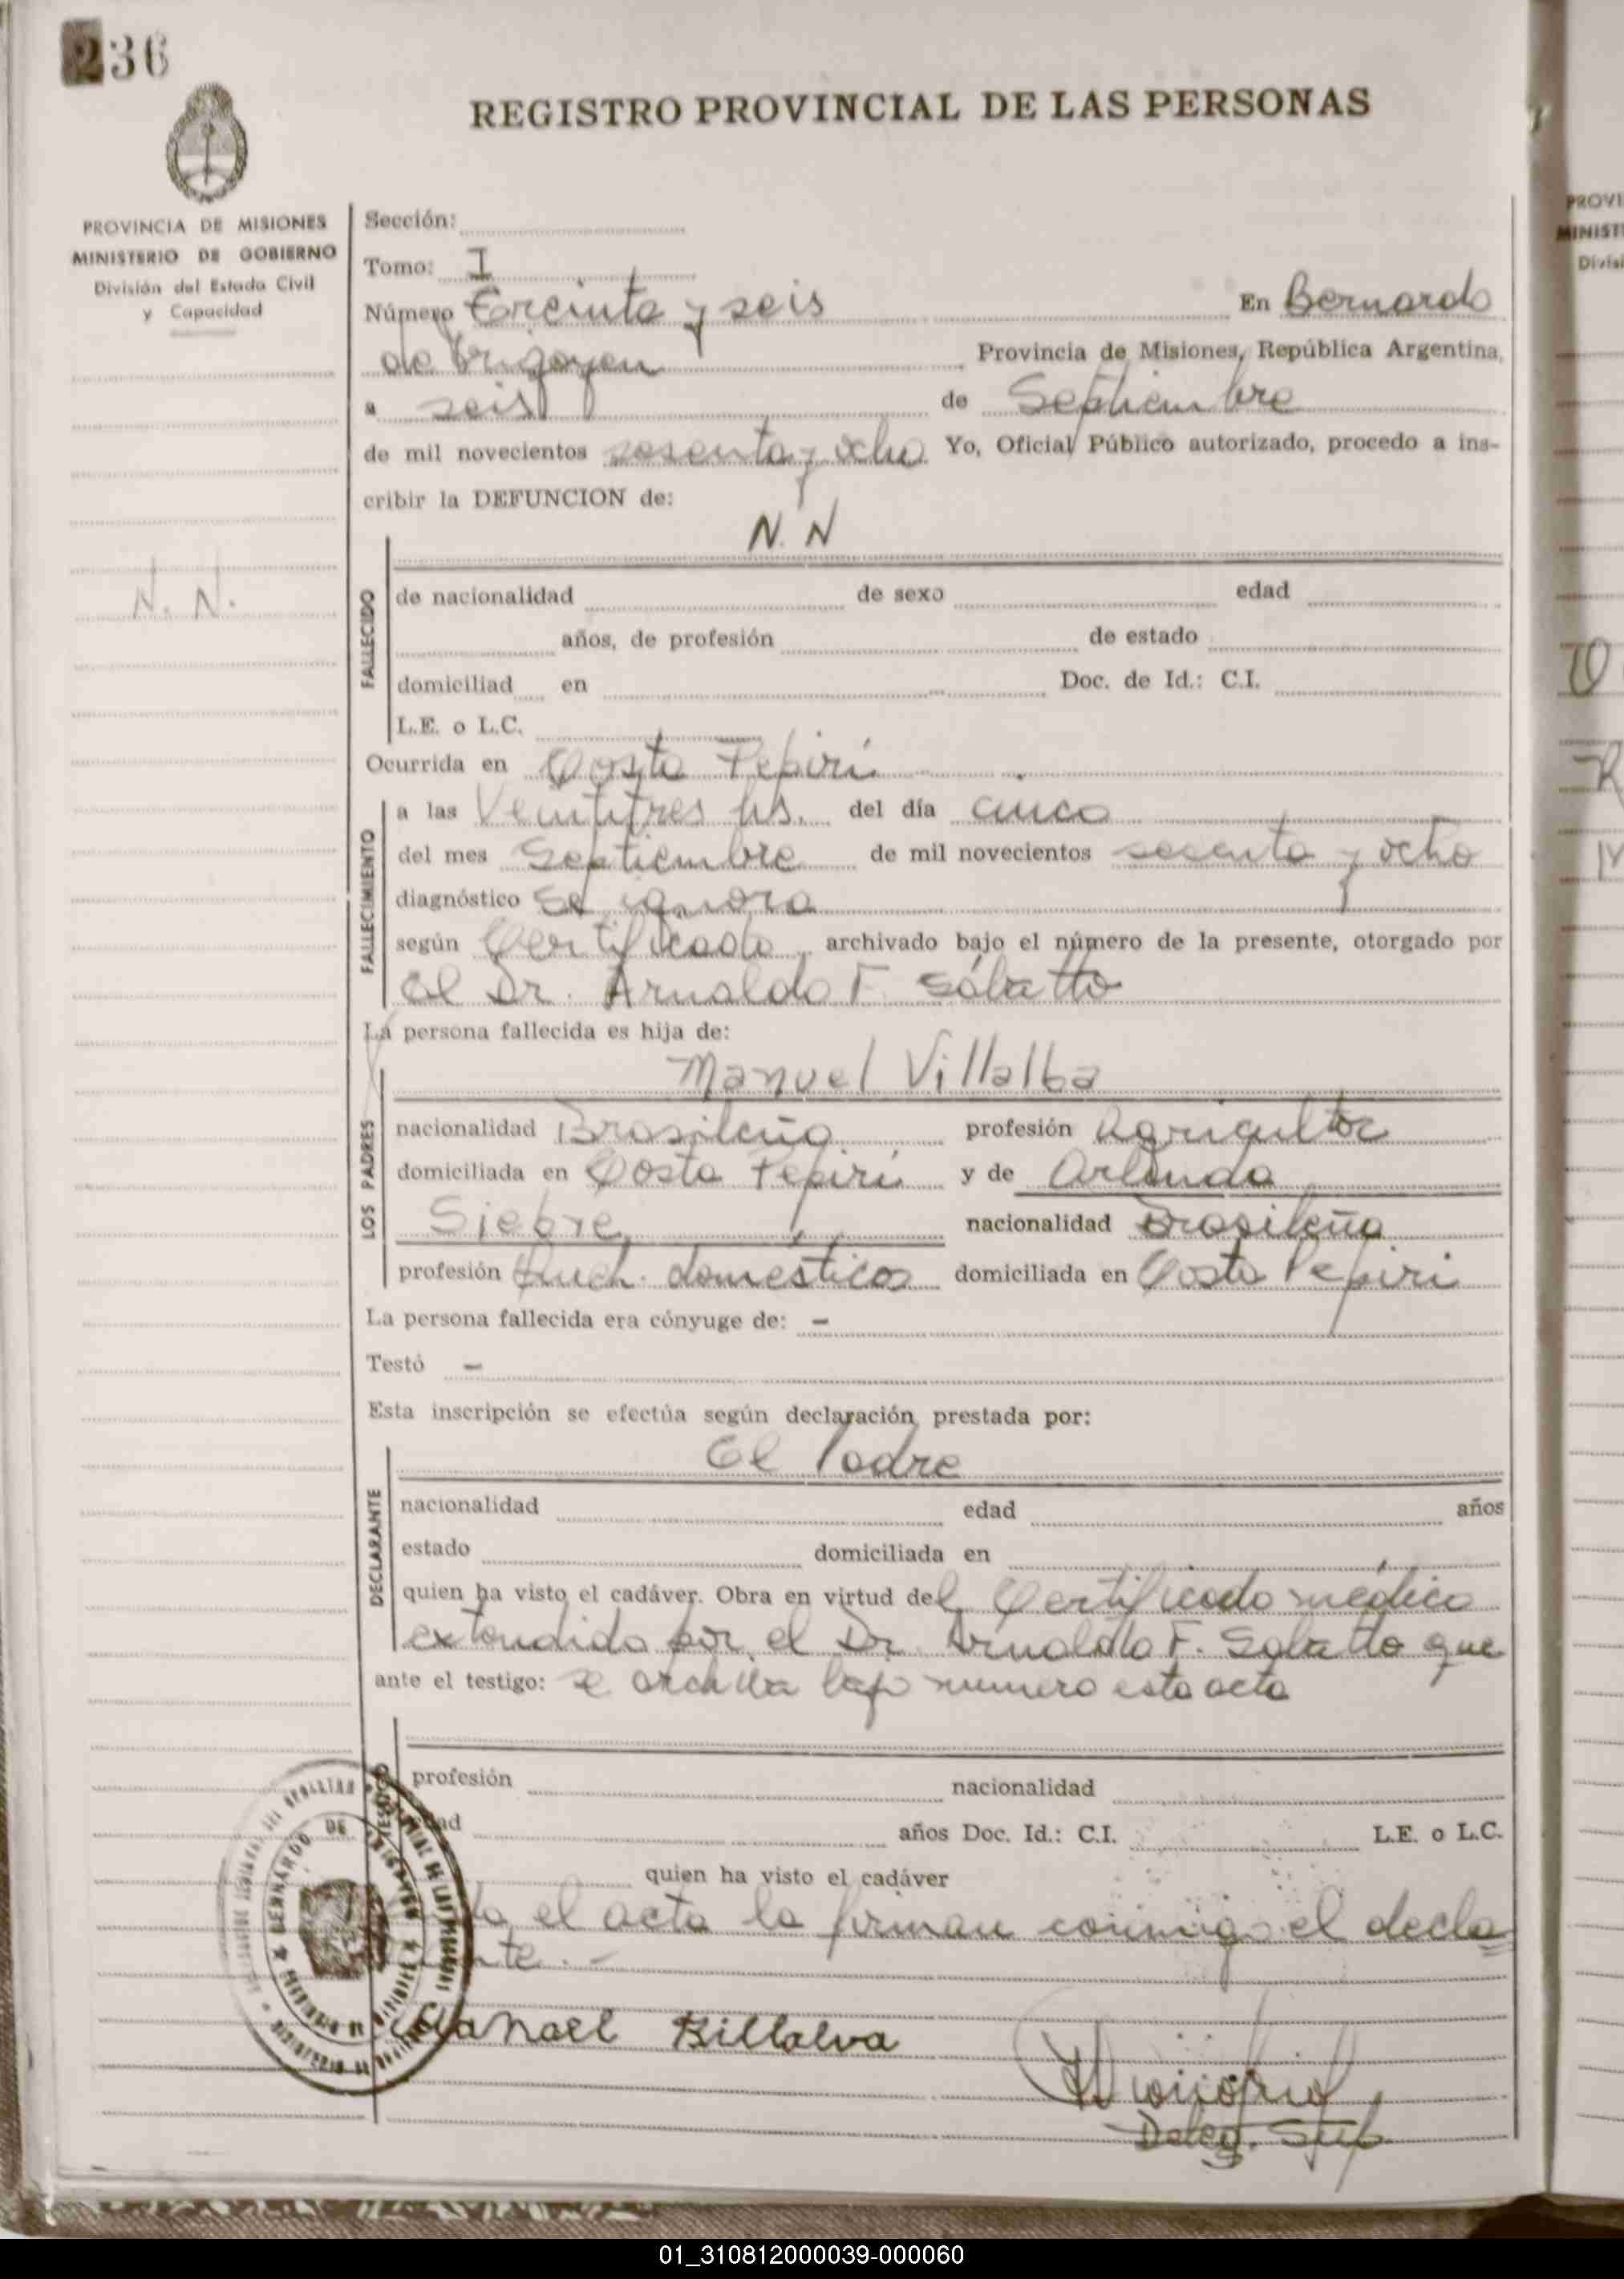 236
REGISTRO PROVINCIAL DE LAS PERSONAS
PROVINCIA DE MISIONES
MINISTERIO DE GOBIERNO
División del Estado Civil
y Capacidad
N. N.
Sección:
Tomo: I
Número Treinta y seis En Bernardo
de Irigoyen Provincia de Misiones, República Argentina,
a seis de Septiembre
de mil novecientos sesenta y ocho Yo, Oficial Público autorizado, procedo a ins-
cribir la DEFUNCION de:
N. N
FALLECIDO
de nacionalidad de sexo edad
años, de profesión de estado
domiciliad en Doc. de Id.: C.I.
L.E. o L.C.
Ocurrida en Costa Pepirí
FALLECIMIENTO
a las Veintitres hs. del día cinco
del mes Septiembre de mil novecientos sesenta y ocho
diagnóstico Se ignora
según Certificado archivado bajo el número de la presente, otorgado por
el Dr. Arnaldo F. Sábatto
La persona fallecida es hija de:
Manuel Villalba
LOS PADRES
nacionalidad Brasileña profesión Agricultor
domiciliada en Costa Pepirí y de Arlinda
Siebre nacionalidad Brasileña
profesión Queh. domésticos domiciliada en Costa Pepiri
La persona fallecida era cónyuge de: -
Testó -
Esta inscripción se efectúa según declaración prestada por:
El Padre
DECLARANTE
nacionalidad edad años
estado domiciliada en
quien ha visto el cadáver. Obra en virtud del Certificado médico
extendido por el Dr. Arnaldo F. Sabatto que
ante el testigo: se archiva bajo numero esta acta
TESTIGO
profesión nacionalidad
años Doc. Id.: C.I. L.E. o L.C.
quien ha visto el cadáver
el acta la firman conmigo el decla
nte. -
Manoel Billalva
Deleg. Sup.
BERNARDO DE
PROVI
MINIST
Divis
01_310812000039-000060